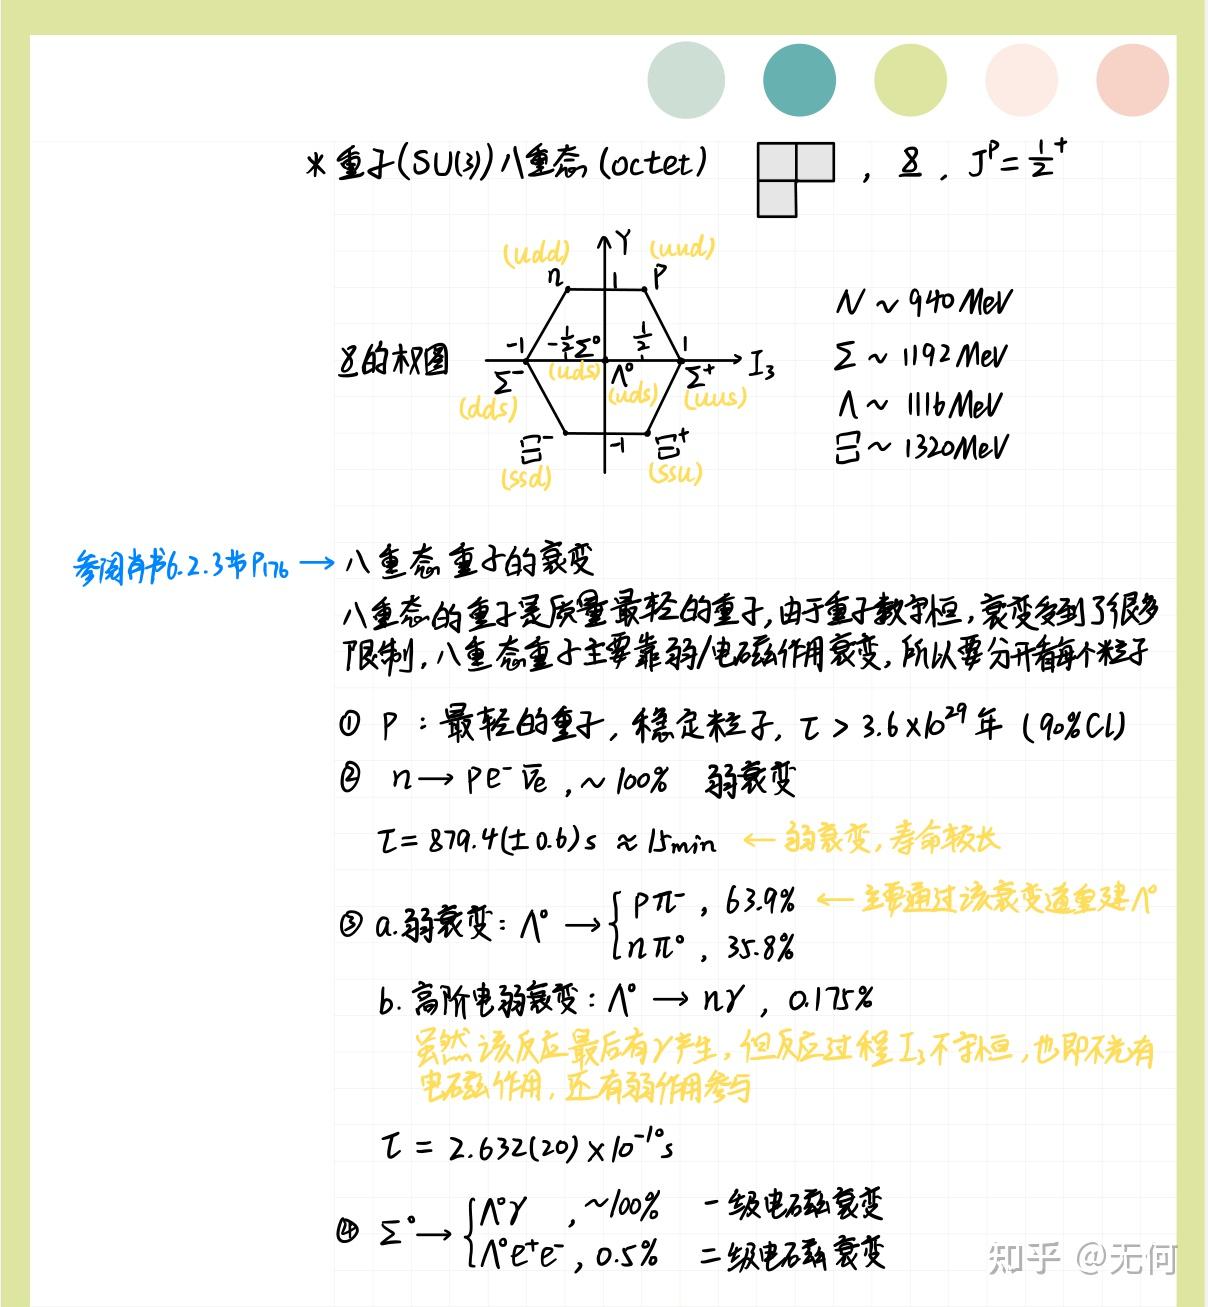 * 重子(SU(3))八重态(octet) , 8 , J^P = 1/2^+
Y
(udd) (uud)
n 1 P
-1 -1/2 Σ⁰ 1/2 1 I₃
(uds) Λ⁰
Σ⁻ (uds) Σ⁺
(dds) (uus)
Ξ⁻ -1 Ξ⁺
(ssd) (ssu)
8的权图
N ~ 940MeV
Σ ~ 1192MeV
Λ ~ 1116MeV
Ξ ~ 1320MeV
参阅肖书6.2.3节P176 → 八重态重子的衰变
八重态的重子是质量最轻的重子,由于重子数守恒,衰变受到了很多
限制,八重态重子主要靠弱/电磁作用衰变,所以要分开看每个粒子
① P : 最轻的重子, 稳定粒子, τ > 3.6×10²⁹ 年 (90%CL)
② n → pe⁻ν̄e , ~100% 弱衰变
τ = 879.4(±0.6)s ≈ 15min ← 弱衰变,寿命较长
③ a.弱衰变: Λ⁰ → { pπ⁻ , 63.9% ← 主要通过该衰变道重建Λ⁰
nπ⁰ , 35.8%
b. 高阶电弱衰变: Λ⁰ → nγ , 0.175%
虽然该反应最后有γ产生,但反应过程I₃不守恒,也即不光有
电磁作用,还有弱作用参与
τ = 2.632(20)×10⁻¹⁰s
④ Σ⁰ → { Λ⁰γ , ~100% 一级电磁衰变
Λ⁰e⁺e⁻ , 0.5% 二级电磁衰变
知乎 @无何